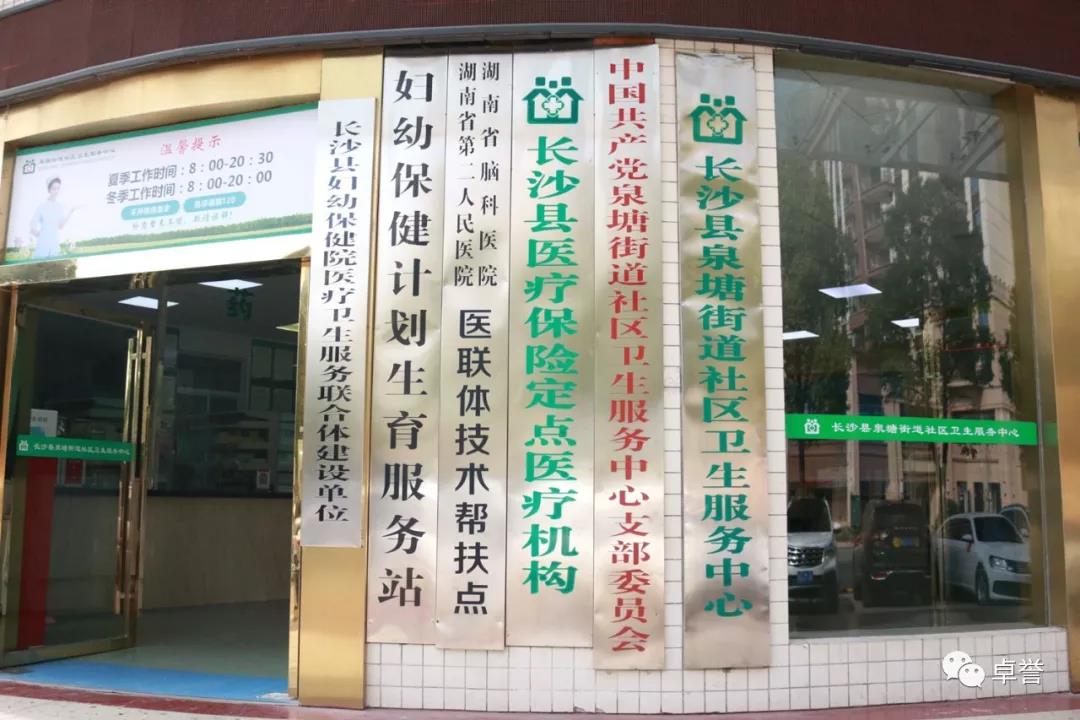 温馨提示
夏季工作时间：8：00-20：30
冬季工作时间：8：00-20：00
药
长沙县泉塘街道社区卫生服务中心
长沙县妇幼保健院医疗卫生服务联合体建设单位
妇幼保健计划生育服务站
湖南省脑科医院
湖南省第二人民医院
医联体技术帮扶点
长沙县医疗保险定点医疗机构
中国共产党泉塘街道社区卫生服务中心支部委员会
长沙县泉塘街道社区卫生服务中心
长沙县泉塘街道社区卫生服务中心
卓誉